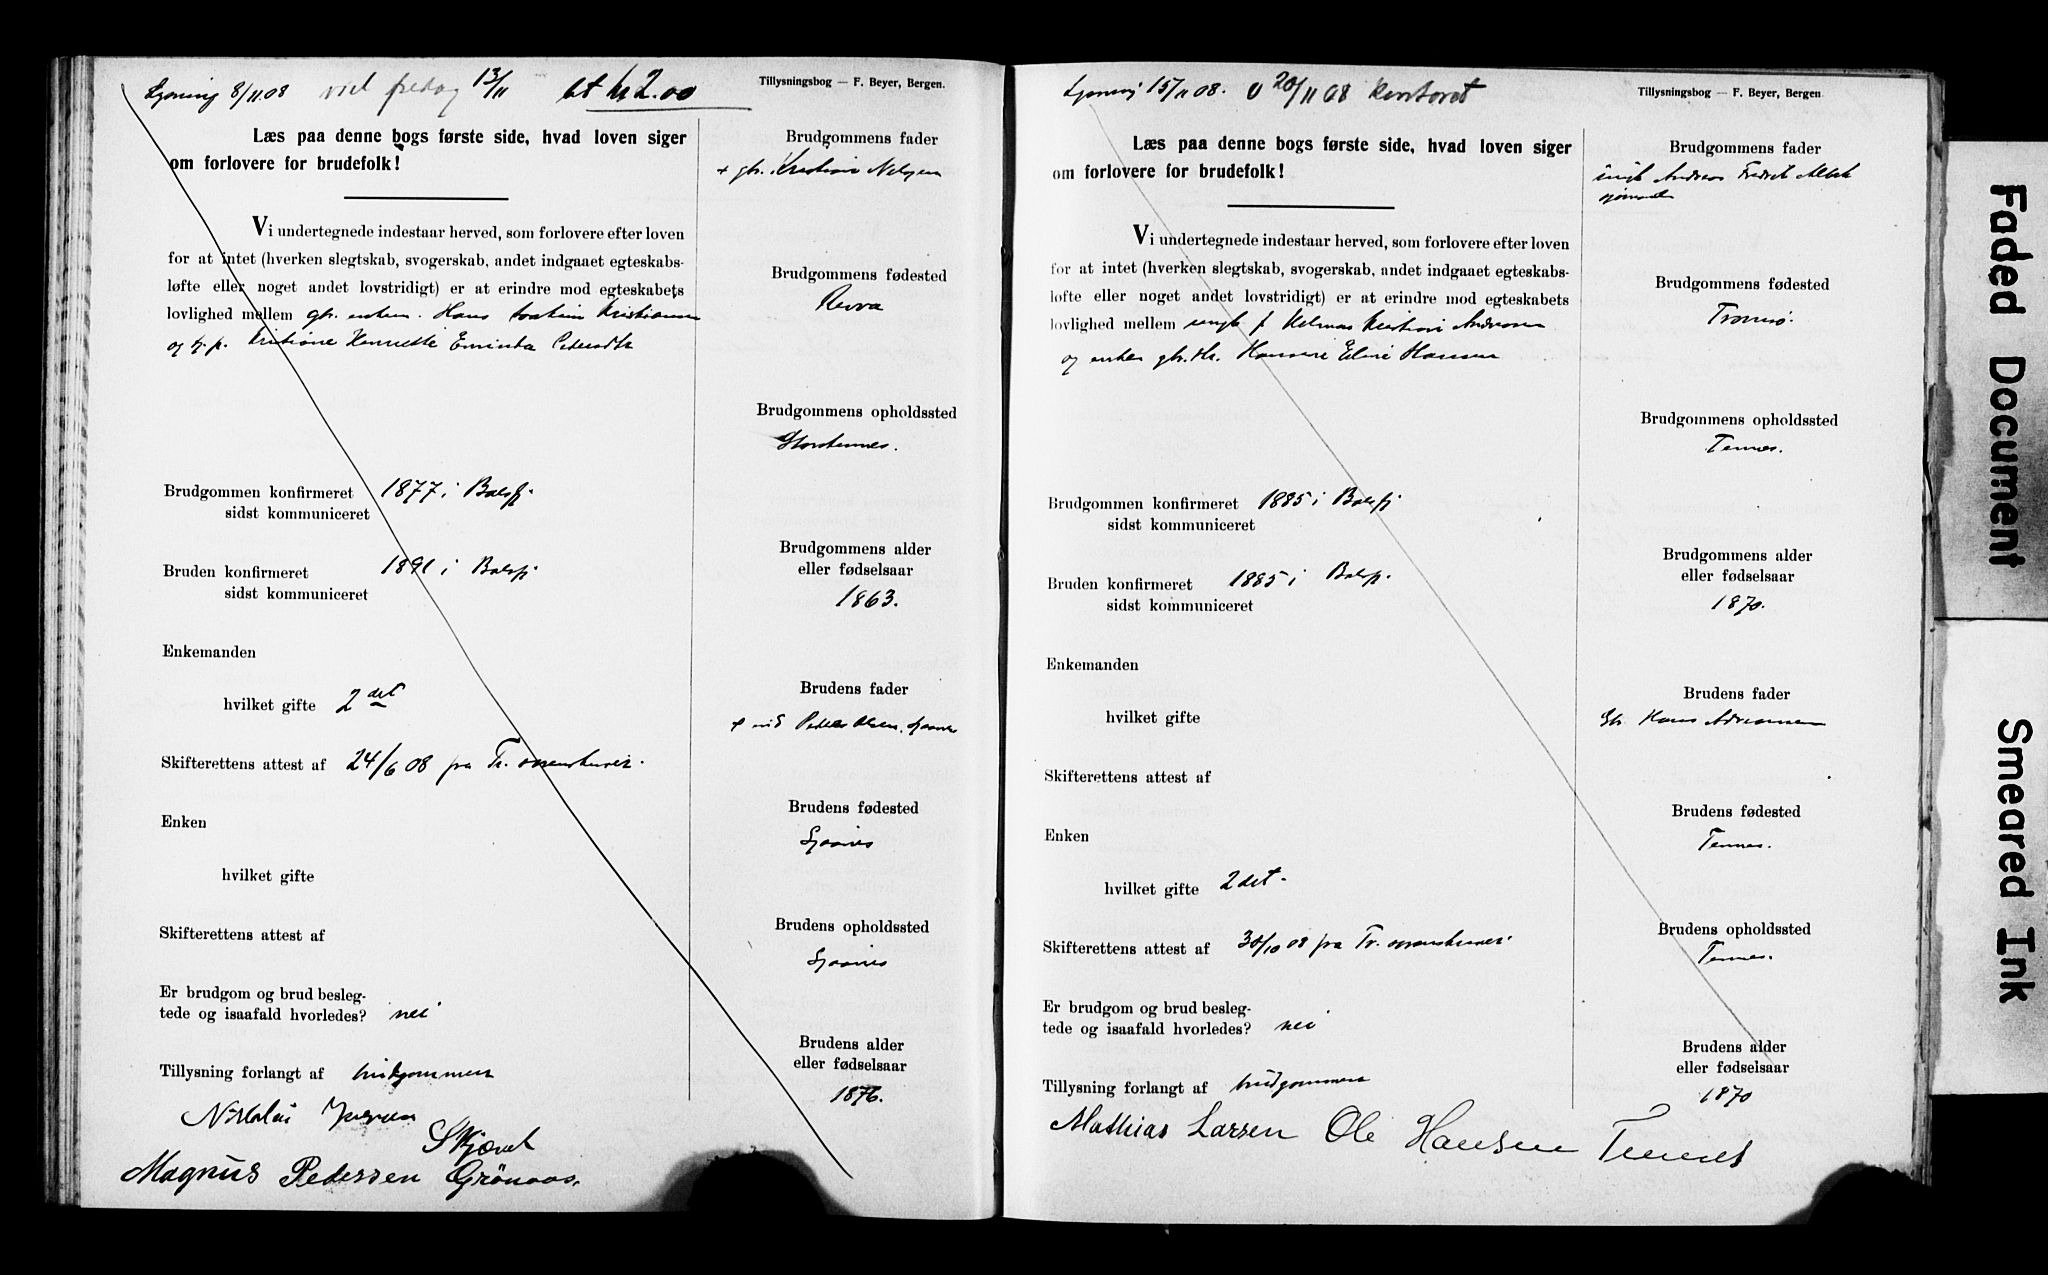 Lysning 8/11.08 viel fredag 13/11 bt kr 2.00
Tillysningsbog — F. Beyer, Bergen.
Læs paa denne bogs første side, hvad loven siger
om forlovere for brudefolk!
Vi undertegnede indestaar herved, som forlovere efter loven
for at intet (hverken slegtskab, svogerskab, andet indgaaet egteskabs-
løfte eller noget andet lovstridigt) er at erindre mod egteskabets
lovlighed mellem gbr. enkem. Hans Kristiansen
og Henrikke Pedersdtr
Brudgommen konfirmeret 1877 i Balsfj.
sidst kommuniceret
Bruden konfirmeret 1891 i Balsfj
sidst kommuniceret
Enkemanden
hvilket gifte 2det
Skifterettens attest af 24/6 08 fra Tr.
Enken
hvilket gifte
Skifterettens attest af
Er brudgom og brud besleg-
tede og isaafald hvorledes? nei
Tillysning forlangt af brudgommen
Nikolai
Skjævel
Magnus Pedersen Grönaas.
Brudgommens fader
+ gbr. Kristian Nilsen
Brudgommens fødested
Brudgommens opholdssted
Storstennes.
Brudgommens alder
eller fødselsaar
1863.
Brudens fader
Peder Olsen,
Brudens fødested
Brudens opholdssted
Brudens alder
eller fødselsaar
1876.
Lysning 15/11 08. V 20/11 08 kontoret
Tillysningsbog — F. Beyer, Bergen
Læs paa denne bogs første side, hvad loven siger
om forlovere for brudefolk!
Vi undertegnede indestaar herved, som forlovere efter loven
for at intet (hverken slegtskab, svogerskab, andet indgaaet egteskabs-
løfte eller noget andet lovstridigt) er at erindre mod egteskabets
lovlighed mellem ungk. f Andreasen
og enken gbr. Hansine Eline Hansen
Brudgommen konfirmeret 1885 i Balsfj
sidst kommuniceret
Bruden konfirmeret 1885 i Balsfj.
sidst kommuniceret
Enkemanden
hvilket gifte
Skifterettens attest af
Enken
hvilket gifte 2det.
Skifterettens attest af 30/10 08 fra Tr.
Er brudgom og brud besleg-
tede og isaafald hvorledes? nei
Tillysning forlangt af brudgommen
Mathias Larsen Ole Hansen Tennes
Brudgommens fader
ungk Andreas Fredrik
Brudgommens fødested
Tromsø.
Brudgommens opholdssted
Tennes.
Brudgommens alder
eller fødselsaar
1870.
Brudens fader
Gbr. Hans Adriansen
Brudens fødested
Tennes.
Brudens opholdssted
Tennes.
Brudens alder
eller fødselsaar
1870
Faded Document
Smeared Ink